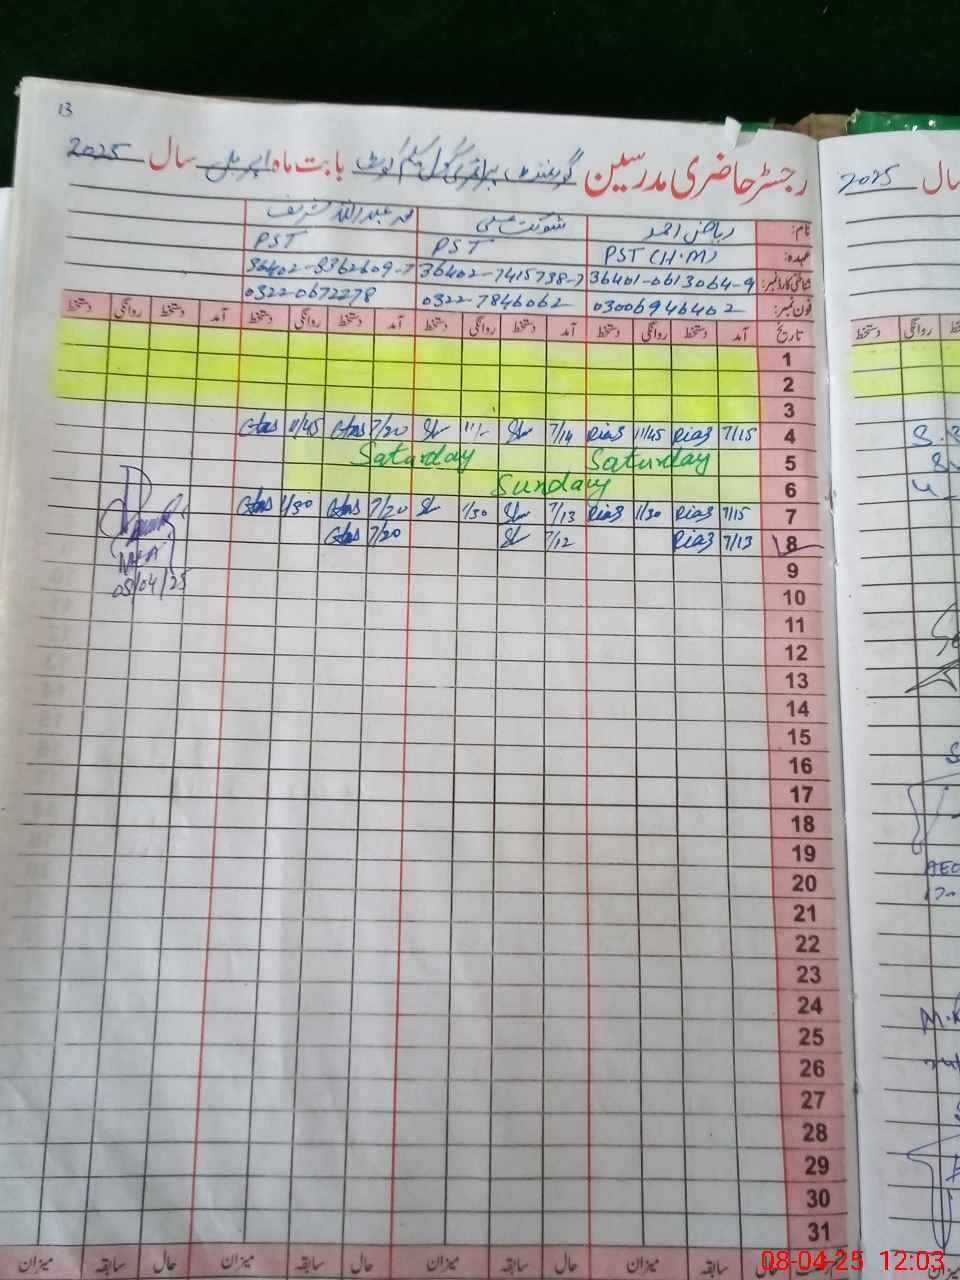 13
رجسٹر حاضری مدرسین گورنمنٹ پرائمری سکول بابت ماہ اپریل سال 2025
نام: ریاض احمد شوکت علی محمد عبداللہ شریف
عہدہ: PST (H.M) PST PST
شناختی کارڈ نمبر: 36401-0613064-9 36402-7415738-7 36402-9362609-7
فون نمبر: 03006946402 0322-7846062 0322-0672278
تاریخ آمد دستخط روانگی دستخط آمد دستخط روانگی دستخط آمد دستخط روانگی دستخط آمد دستخط روانگی دستخط
1
2
3
4 7/15 Riaz 11/45 Riaz 7/14 11/- 7/20 11/45
5 Saturday Saturday
6 Sunday
7 7/15 Riaz 1/30 Riaz 7/13 1/30 7/20 1/30
8 7/13 Riaz 7/12 7/20
MEA
08/04/25
9
10
11
12
13
14
15
16
17
18
19
20
21
22
23
24
25
26
27
28
29
30
31
سابقہ میزان حال سابقہ میزان حال سابقہ میزان حال سابقہ میزان
سال 2025
دستخط روانگی
AEO
08-04-25 12:03